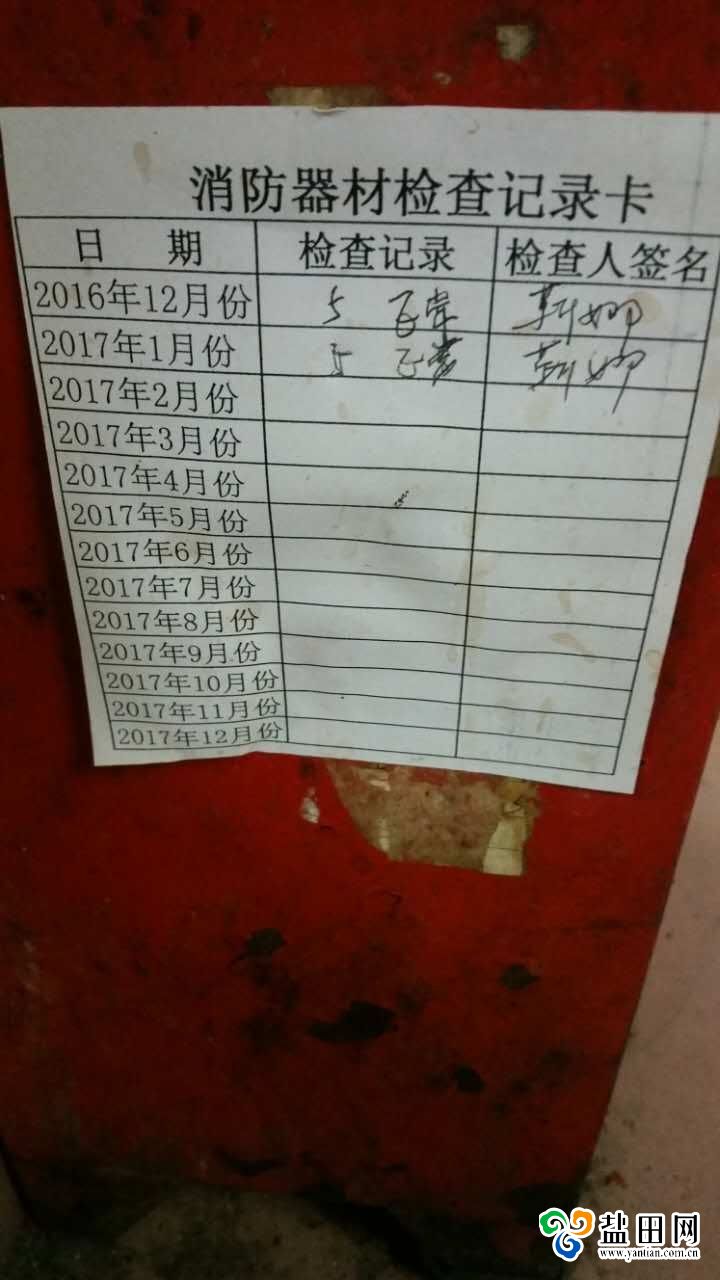 消防器材检查记录卡
日 期 检查记录 检查人签名
2016年12月份 5 正常
2017年1月份 5 正常
2017年2月份
2017年3月份
2017年4月份
2017年5月份
2017年6月份
2017年7月份
2017年8月份
2017年9月份
2017年10月份
2017年11月份
2017年12月份
盐田网
www.yantian.com.cn